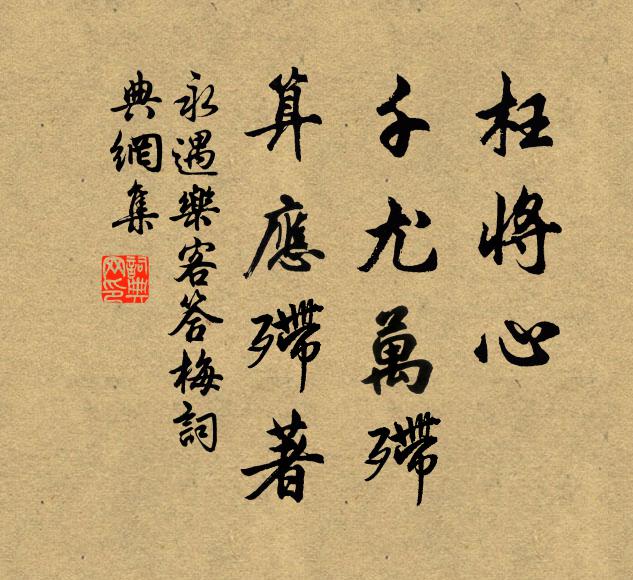 枉將心
千尤萬殢
算應殢著
永遇樂客答梅詞
典網集
詞典
网印